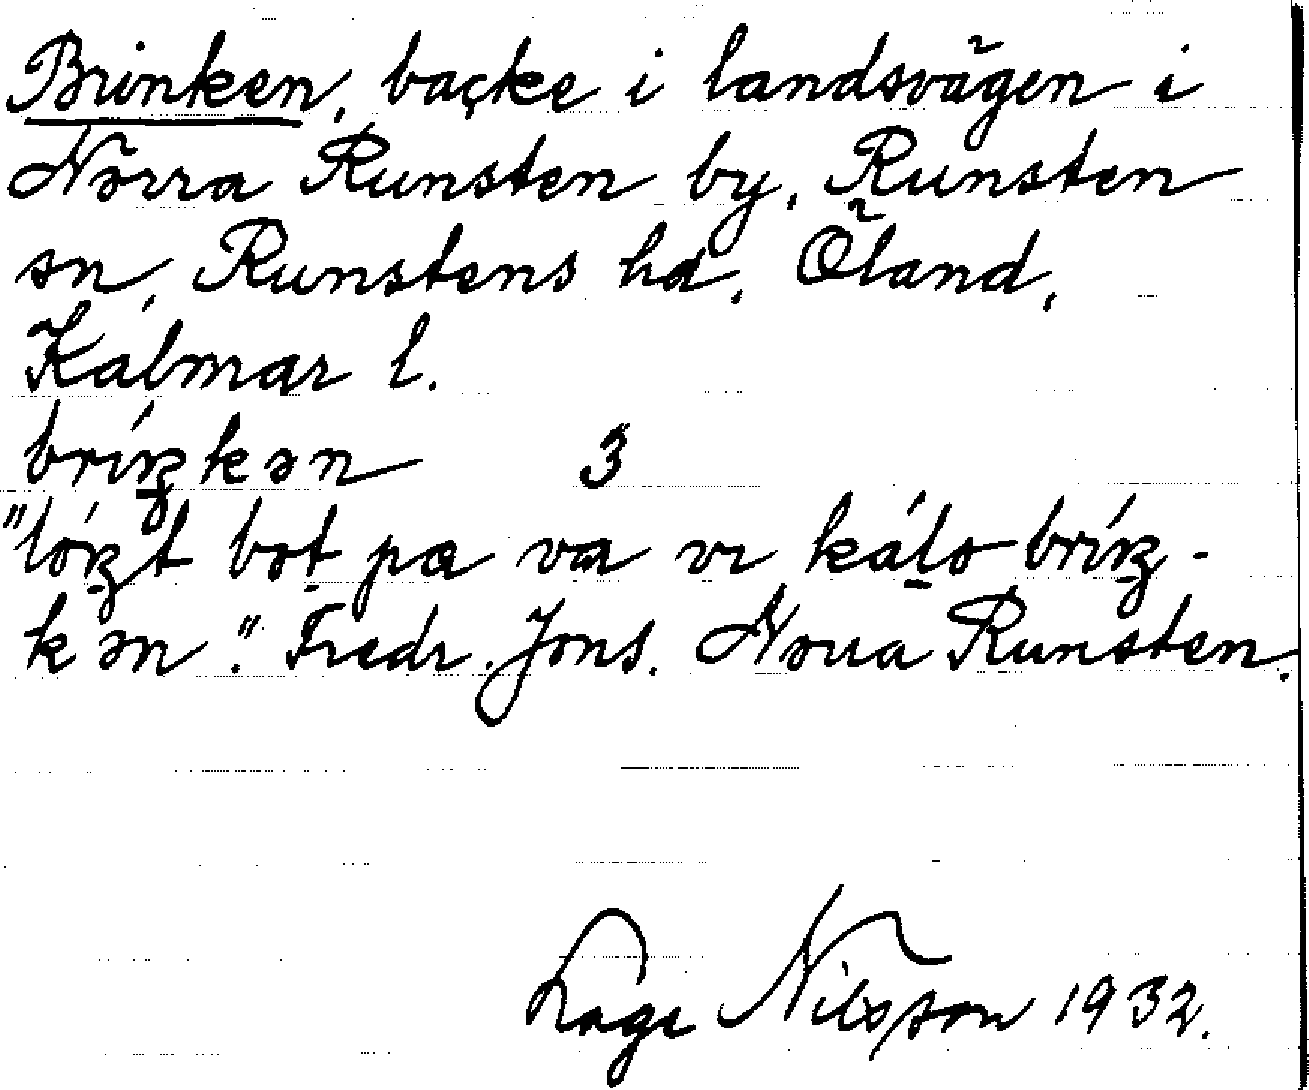 Brinken, backe i landsvägen i
Norra Runsten by, Runsten
sn, Runstens hd, Öland,
Kalmar l.
bríŋkən 3
"lóŋt bot pæ va vi kálo bríŋ-
kən". Fredr. Jons. Norra Runsten.
Lage Nilsson 1932.